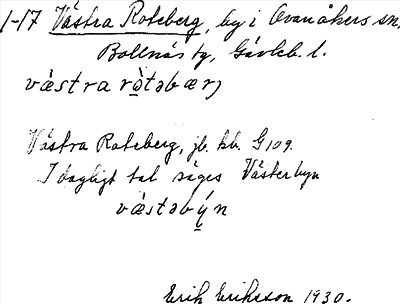 1-17 Västra Roteberg, by i Ovanåkers sn.
Bollnäs tg, Gävleb. l.
væ̀stra rò̤təbærj
Västra Roteberg, jb. bb. G 109.
I dagligt tal säges Västerbyn
væ̀stəbý̤n
Erik Eriksson 1930.